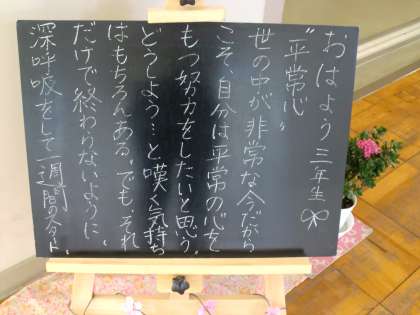 おはよう三年生
"平常心"
世の中が非常な今だから
こそ、自分は平常の心を
もつ努力をしたいと思う。
どうしよう…と嘆く気持ち
はもちろんある。でも、それ
だけで終わらないように、
深呼吸をして一週間のスタート。